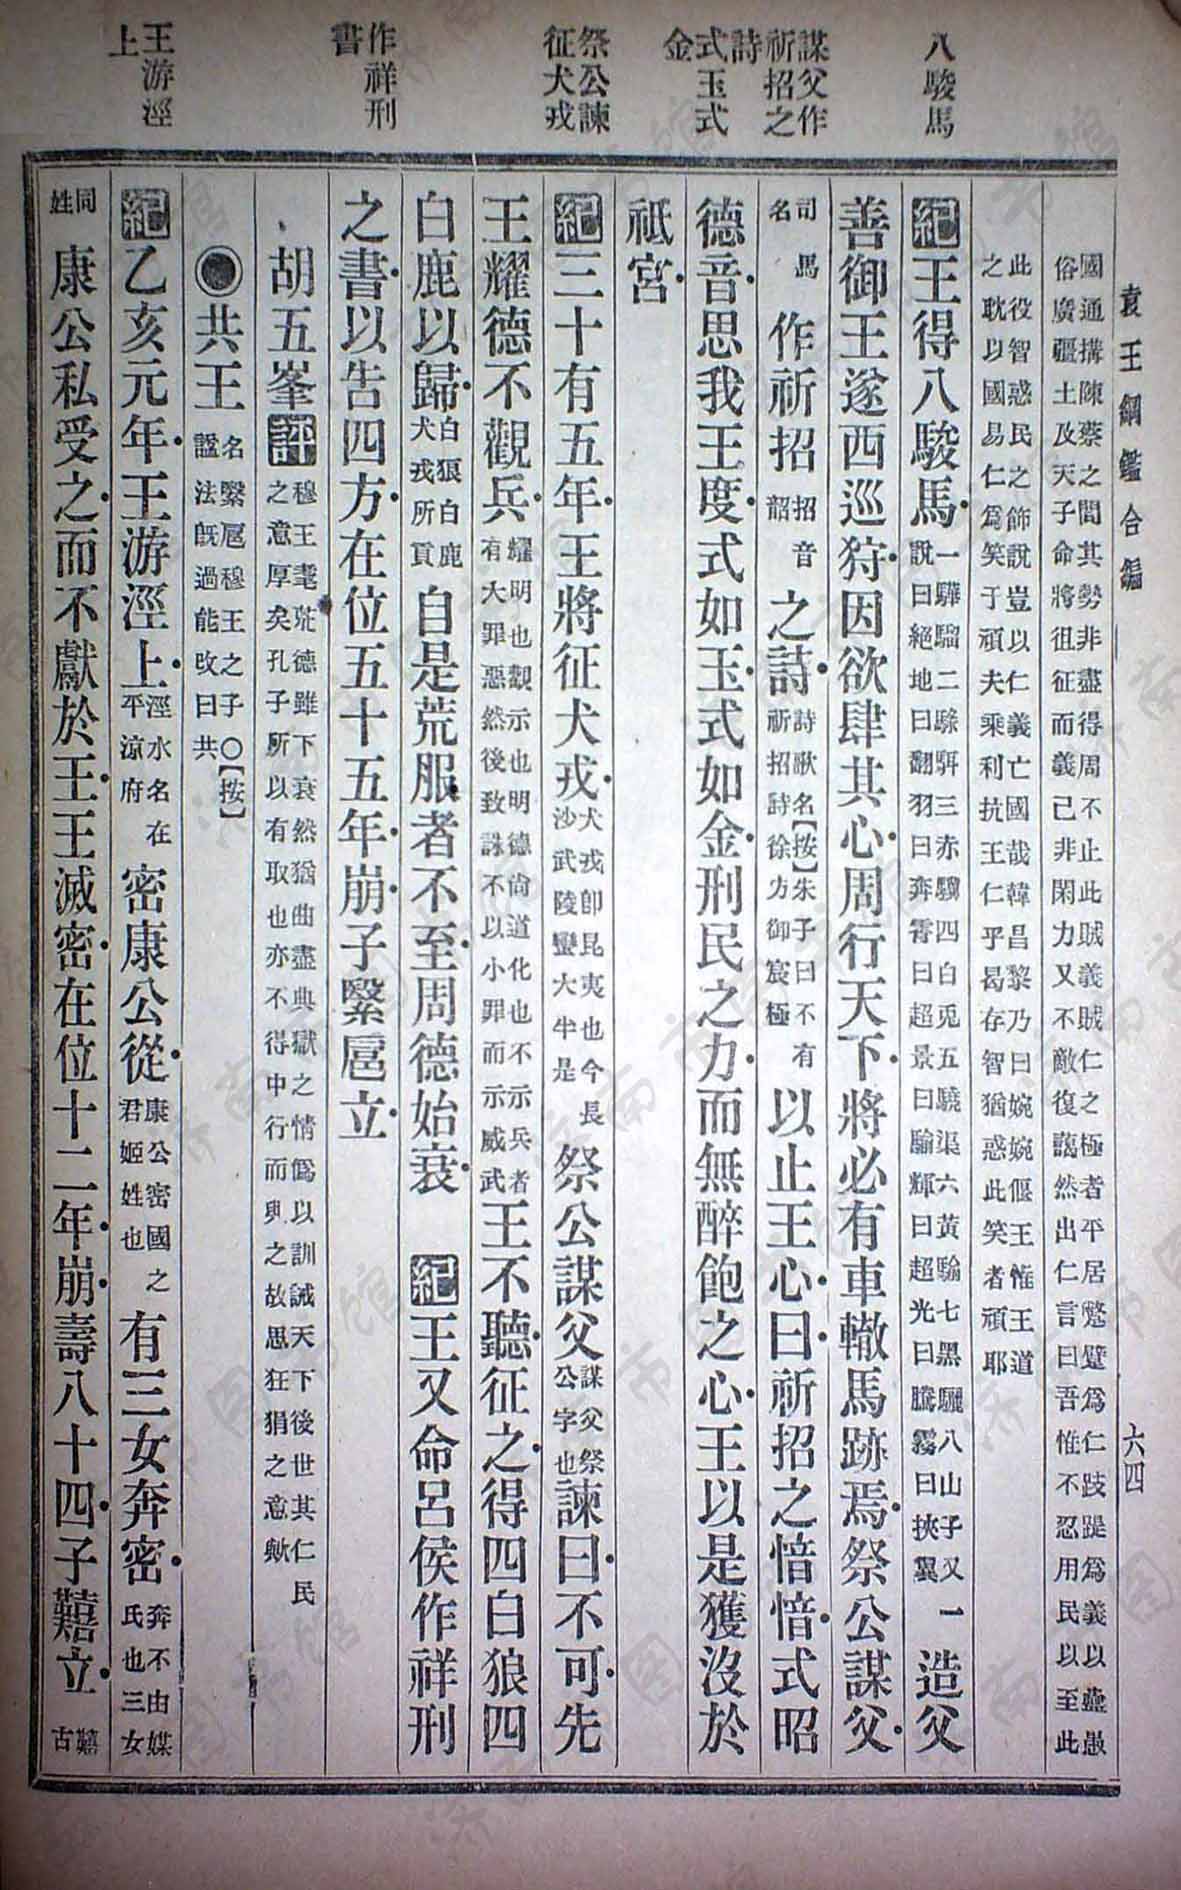 袁王綱鑑合編
六四
八駿馬
謀父作
祈招之
詩
式玉式
金
祭公諫
征犬戎
作祥刑
書
王游涇
上
國通搆陳蔡之間其勢非盡得周不止此賊義賊仁之極者平居蹩躠爲仁踶跂爲義以蠱愚
俗廣疆土及天子命將徂征而義已非閑力又不敵復藹然出仁言曰吾惟不忍用民以至此
此役智惑民之飾說豈以仁義亡國哉韓昌黎乃曰婉婉偃王惟王道
之耽以國易仁爲笑于頑夫乘利抗王仁乎曷存智猶惑此笑者頑耶
紀王得八駿馬一驊騮二騄駬三赤驥四白兎五驍渠六黃騟七黑驪八山子又一
說曰絕地曰翻羽曰奔霄曰超景曰騟輝曰超光曰騰霧曰挾翼造父
善御王遂西巡狩因欲肆其心周行天下將必有車轍馬跡焉祭公謀父
司馬
名作祈招招音
韶之詩詩歌名【按】朱子曰不有
祈招詩徐方御宸極以止王心曰祈招之愔愔式昭
德音思我王度式如玉式如金刑民之力而無醉飽之心王以是獲沒於
祇宮
紀三十有五年王將征犬戎犬戎卽昆夷也今長
沙武陵蠻大半是祭公謀父謀父祭
公字也諫曰不可先
王耀德不觀兵耀明也觀示也明德尙道化也不示兵者
有大罪惡然後致誅不以小罪而示威武王不聽征之得四白狼四
白鹿以歸白狼白鹿
犬戎所貢自是荒服者不至周德始衰　紀王又命呂侯作祥刑
之書以告四方在位五十五年崩子繄扈立
胡五峯評穆王耄荒德雖下衰然猶曲盡典獄之情僞以訓誡天下後世其仁民
之意厚矣孔子所以有取也亦不得中行而與之故思狂狷之意歟
●共王名繄扈穆王之子〇【按】
諡法旣過能改曰共
紀乙亥元年王游涇上涇水名在
平涼府密康公從康公密國之
君姬姓也有三女奔密奔不由媒
氏也三女
同
姓康公私受之而不獻於王王滅密在位十二年崩壽八十四子囏立囏
古